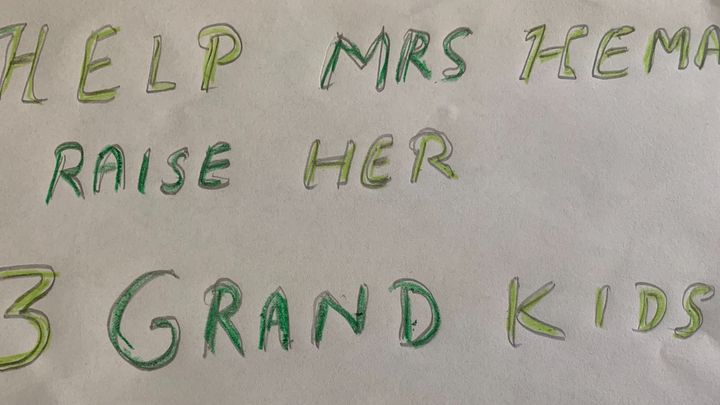 HELP MRS HEMA
RAISE HER
3 GRAND KIDS